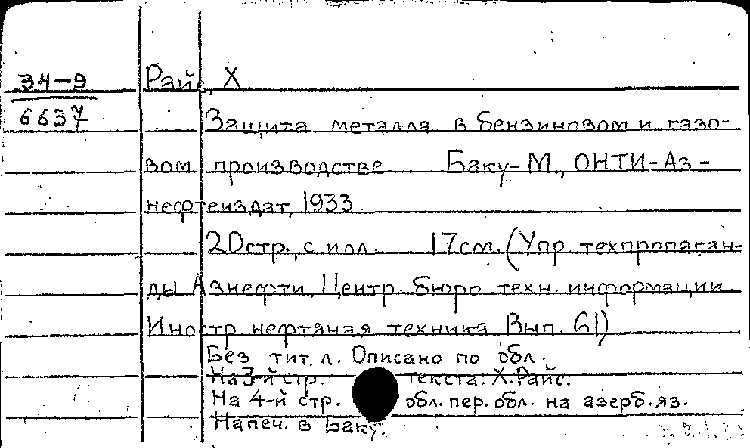 34-9
6637
Райс, Х
Защита металла в бензиновом и газо-
вом производстве Баку-М., ОНТИ-Аз-
нефтеиздат, 1933
20стр., с илл. 17см. (Упр. техпропаган-
ды Азнефти, Центр. бюро техн. информации
Иностр. нефтяная техника Вып. 61)
Без тит. л. Описано по обл.
На 3-й стр. текста: Х. Райс.
На 4-й стр. обл. пер. обл. на азерб. яз.
Напеч. в Баку.